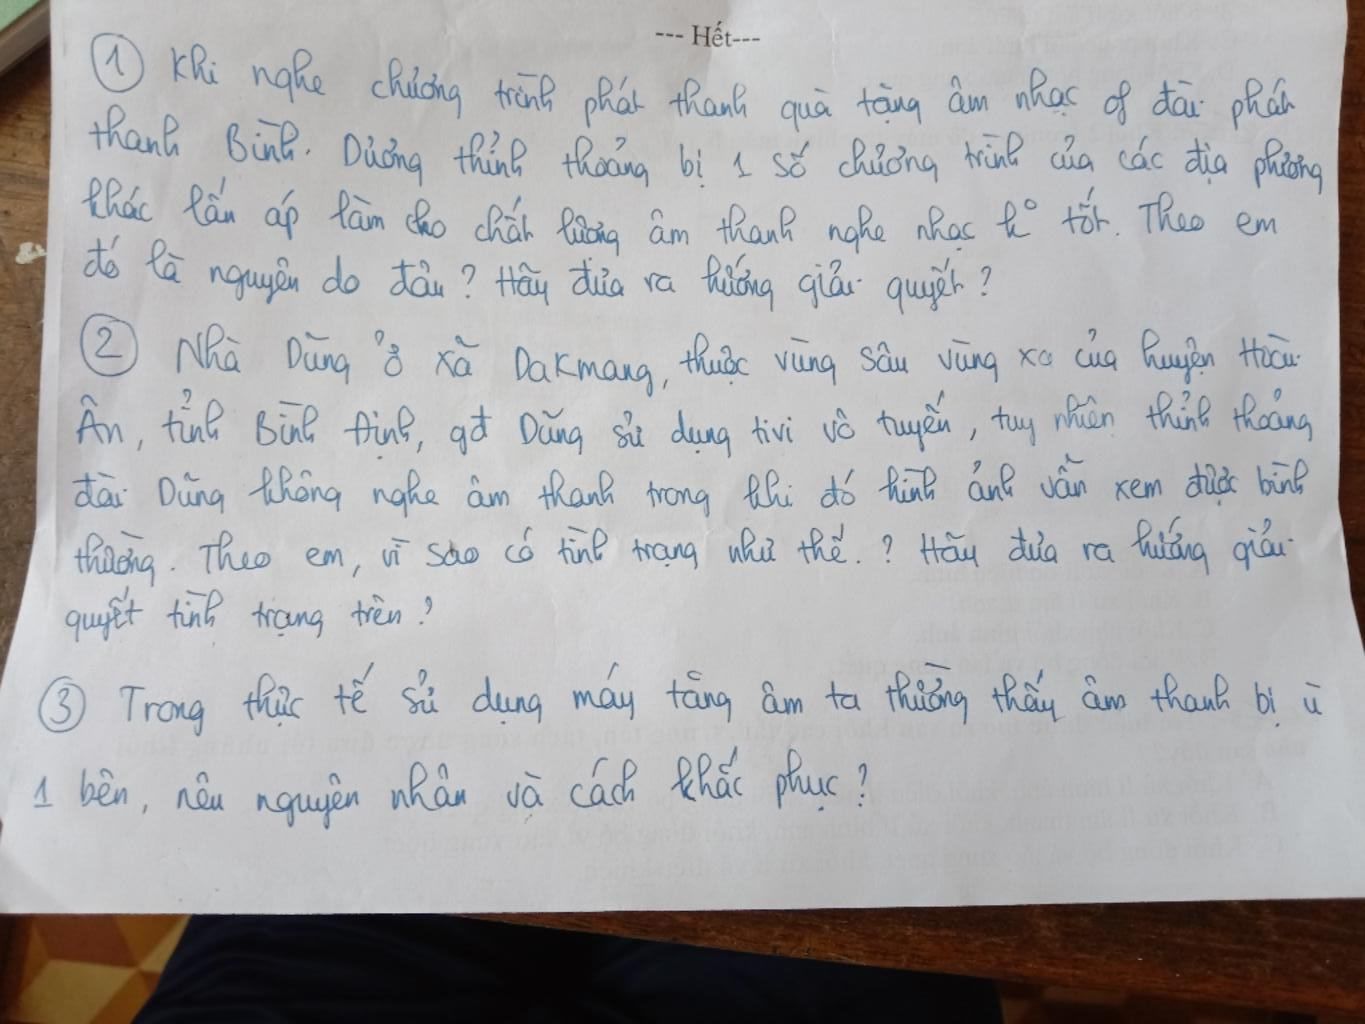 --- Hết---
① Khi nghe chương trình phát thanh quà tặng âm nhạc of đài phát
thanh Bình. Dương thỉnh thoảng bị 1 số chương trình của các địa phương
khác lấn áp làm cho chất lượng âm thanh nghe nhạc k° tốt. Theo em
đó là nguyên do đâu? Hãy đưa ra hướng giải quyết?
② Nhà Dũng ở xã Dakmang, thuộc vùng sâu vùng xa của huyện Hoài
Ân, tỉnh Bình Định, gđ Dũng sử dụng tivi vô tuyến, tuy nhiên thỉnh thoảng
đài Dũng không nghe âm thanh trong khi đó hình ảnh vẫn xem được bình
thường. Theo em, vì sao có tình trạng như thế.? Hãy đưa ra hướng giải
quyết tình trạng trên?
③ Trong thực tế sử dụng máy tăng âm ta thường thấy âm thanh bị ù
1 bên, nêu nguyên nhân và cách khắc phục?